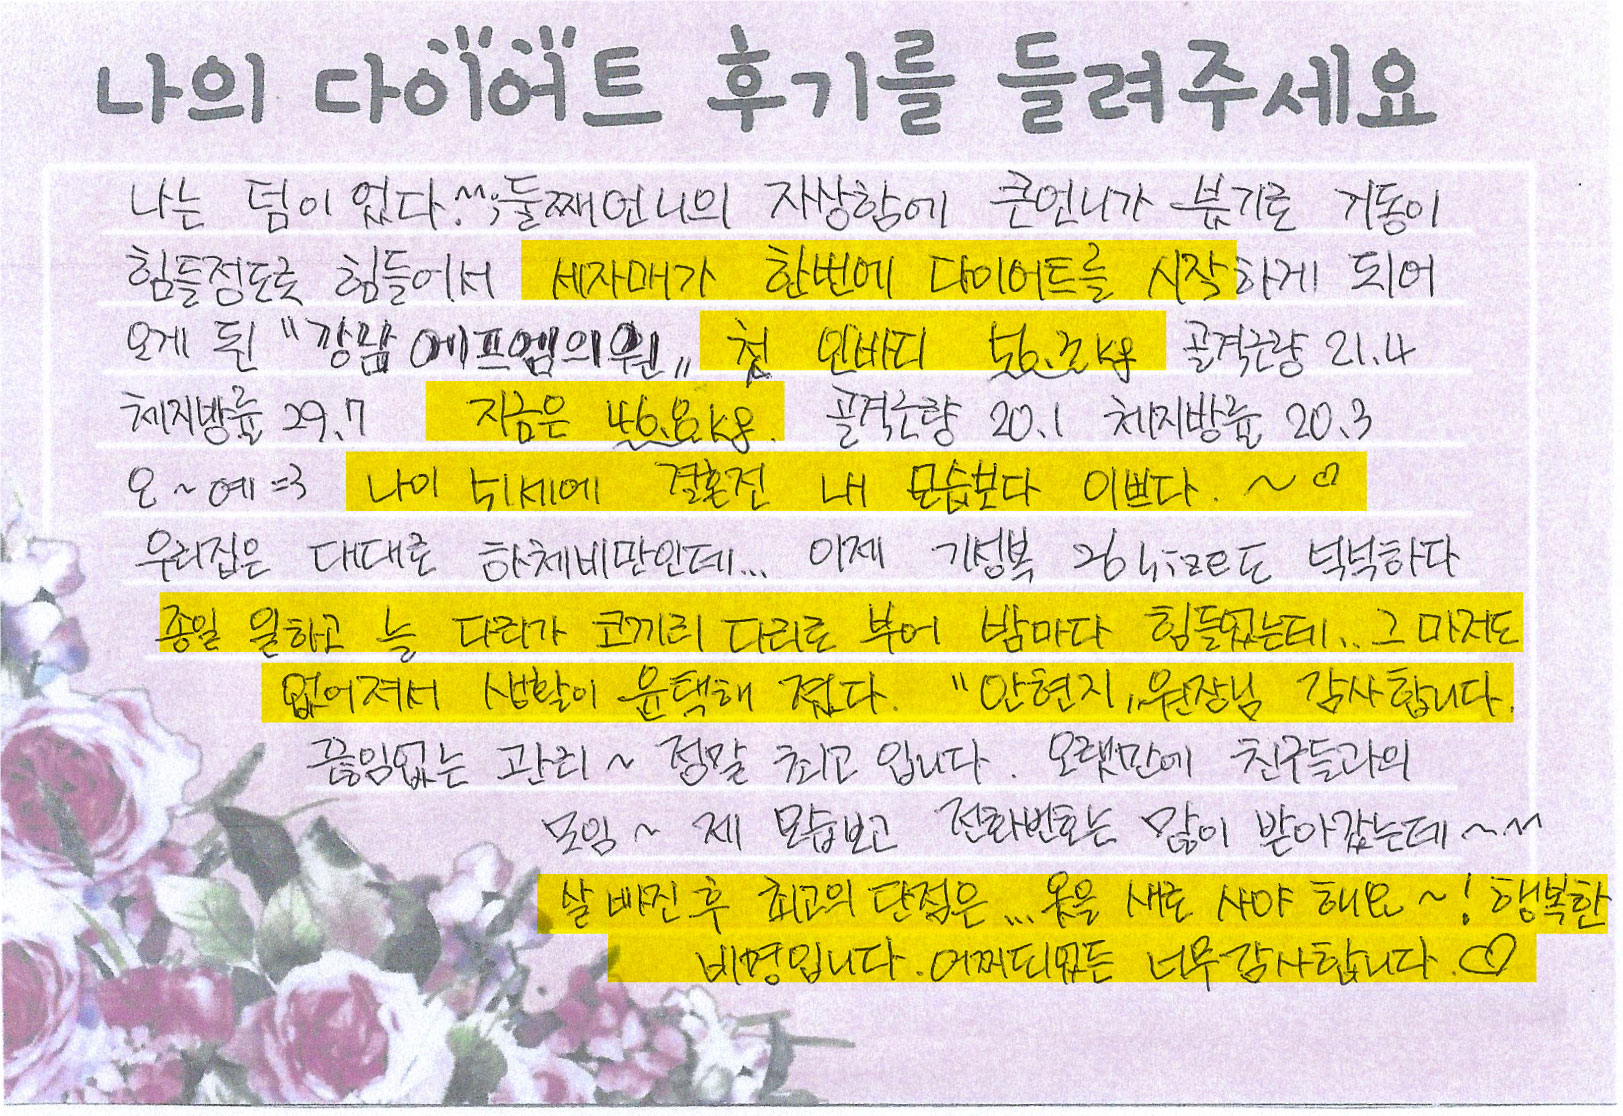 나의 다이어트 후기를 들려주세요
나는 덤이 었다.^^;둘째언니의 자상함에 큰언니가 붓기로 거동이
힘들정도로 힘들어서 세자매가 한번에 다이어트를 시작하게 되어
오게 된 "강남 에프엠의원" 첫 인바디 56.3kg 골격근량 21.4
체지방률 29.7 지금은 46.8kg. 골격근량 20.1 체지방률 20.3
오~예=3 나이 51세에 결혼전 내 모습보다 이쁘다. ~♡
우리집은 대대로 하체비만인데... 이제 기성복 26 size도 넉넉하다
종일 일하고 늘 다리가 코끼리 다리로 부어 밤마다 힘들었는데.. 그 마저도
없어져서 생활이 윤택해 졌다. "안현지" 원장님 감사합니다.
끊임없는 관리~ 정말 최고 입니다. 오랫만에 친구들과의
모임~ 제 모습보고 전화번호는 많이 받아갔는데~~
살 빠진 후 최고의 단점은... 옷을 새로 사야 해요~! 행복한
비명입니다. 어쩌되었든 너무감사합니다. ♡